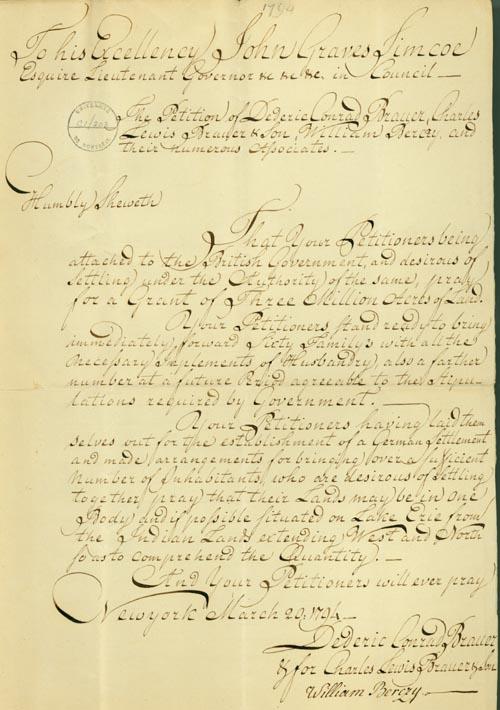 1794
To his Excellency John Graves Simcoe
Esquire Lieutenant Governor &c &c &c, in Council —
The Petition of Dederic Conrad Brauer, Charles
Lewis Brauer & Son, William Berczy, and
their numerous Associates. —
Humbly Sheweth
That Your Petitioners being
attached to the British Government, and desirous of
settling under the Authority of the same, pray
for a Grant of Three Million Acres of Land.
Your Petitioners stand ready to bring
immediately forward Sixty Family's with all the
necessary Implements of Husbandry, also a farther
number at a future Period agreeable to the Stipu-
lations required by Government. —
Your Petitioners having laid them
selves out for the establishment of a German Settlement
and made arrangements for bringing over a sufficient
Number of Inhabitants, who are desirous of settling
together, pray that their Lands may be in one
Body and if possible situated on Lake Erie from
the Indian Lands extending West and North
so as to comprehend the Quantity. —
And Your Petitioners will ever pray
Newyork March 20, 1794 —
Dederic Conrad Brauer
& for Charles Lewis Brauer & Son
William Berczy —